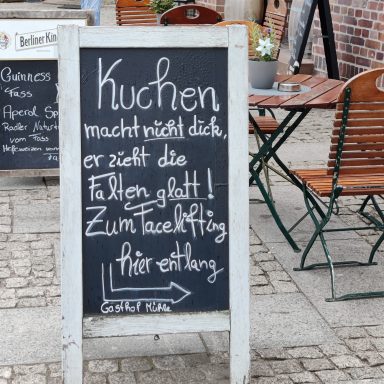 Berliner Kin
Guinness
Fass
Aperol Sp
Radler Naturtr
vom Fass
Hefeweizen vom
Kuchen
macht nicht dick,
er zieht die
Falten glatt!
Zum Facelifting
hier entlang
Gasthof Mühle